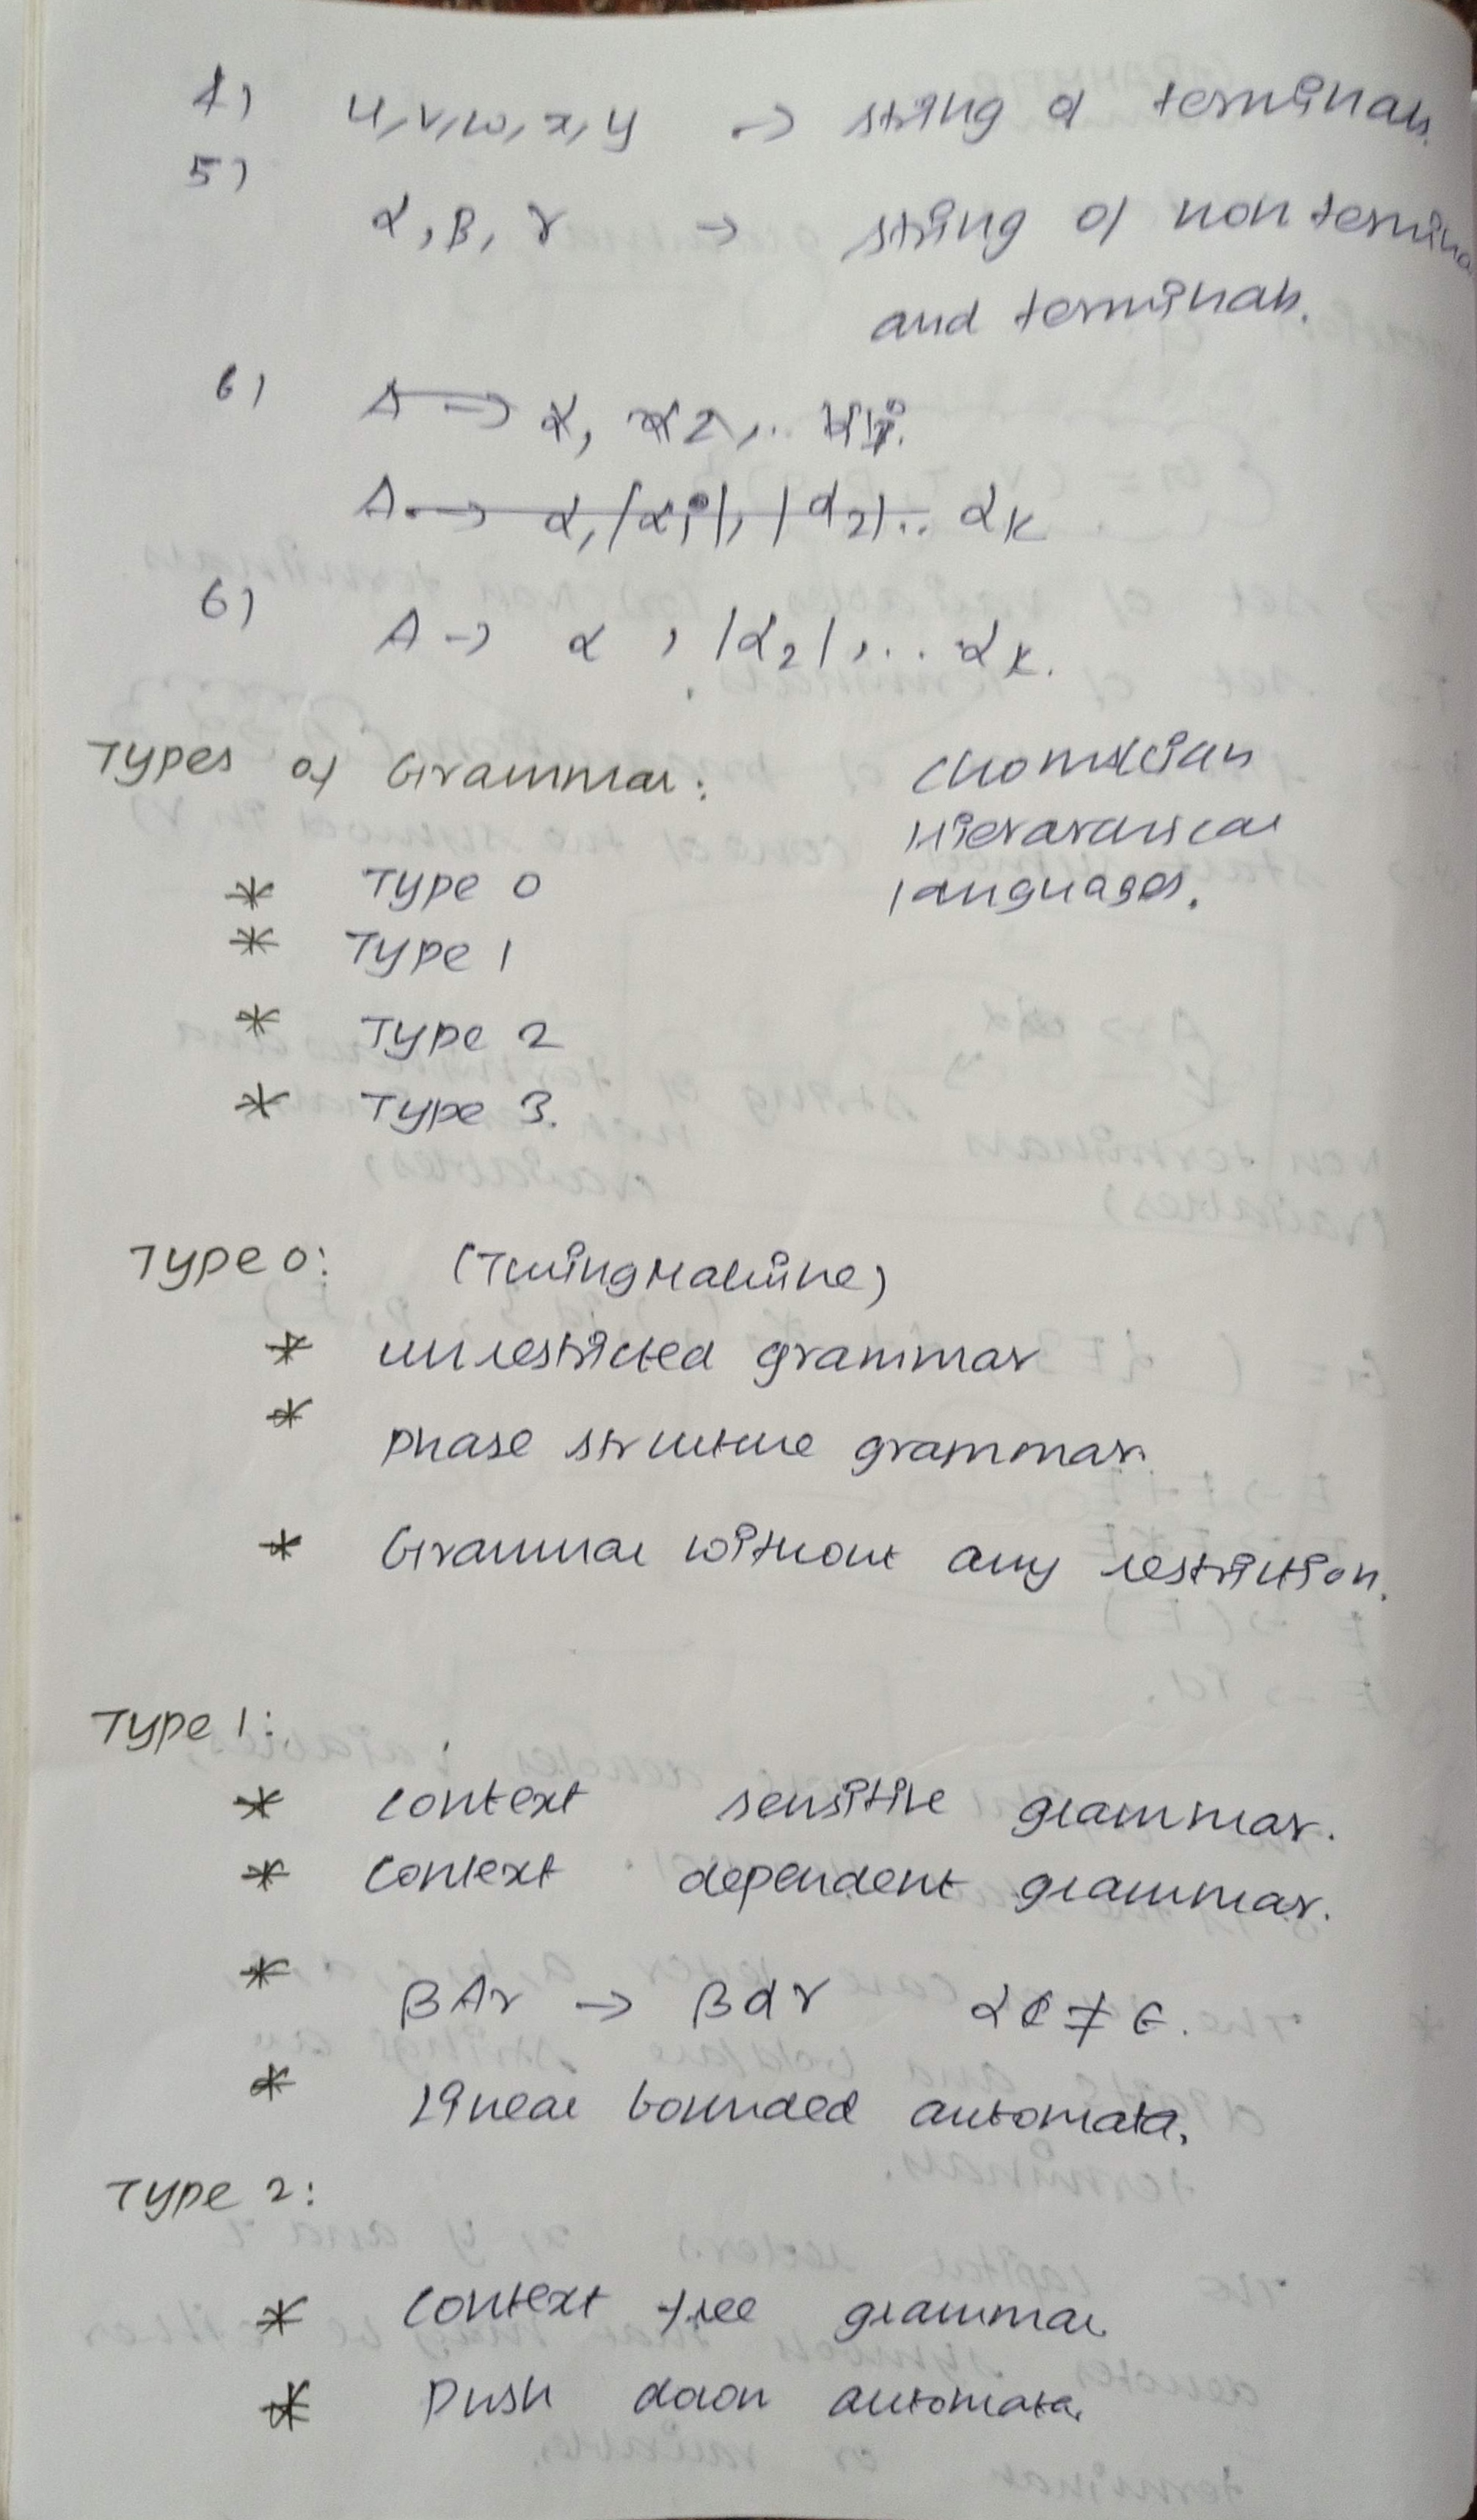 4) u, v, w, x, y → string of terminals.
5)
α, β, γ → string of non termina
and terminals.
6)
A → α, |α2|, ... αk
6) A → α , |α2|, ... αk.
Types of Grammar: Chomskian
Hierarchical
languages.
* Type 0
* Type 1
* Type 2
* Type 3.
Type 0: (Turing Machine)
* unrestricted grammar
* phase structure grammar.
* Grammar without any restriction.
Type 1:
* context sensitive grammar.
* context dependent grammar.
* βAγ → βαγ α ≠ ε.
* Linear bounded automata.
Type 2:
* context free grammar.
* Push down automata.